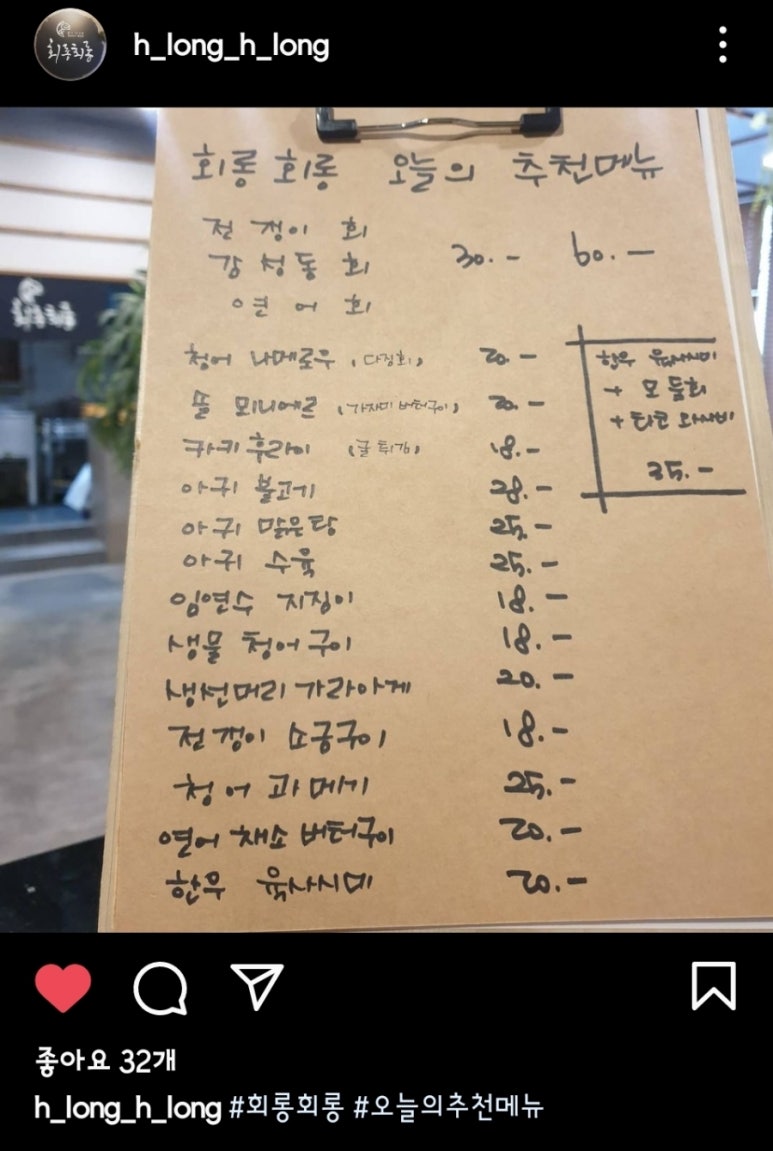 회롱회롱
h_long_h_long
회롱 회롱 오늘의 추천메뉴
전갱이 회
감성돔 회 30.- 60.-
연어 회
회롱회롱
청어 나메로우 (다짐회) 20.-
뮬 뫼니에르 (가자미 버터구이) 20.-
카키후라이 (굴튀김) 18.-
아귀 불고기 28.-
아귀 맑은탕 25.-
아귀 수육 25.-
임연수 지짐이 18.-
생물 청어구이 18.-
생선머리 가라아게 20.-
전갱이 소금구이 18.-
청어 과메기 25.-
연어 채소 버터구이 20.-
한우 육사시미 20.-
한우 육사시미
+ 모둠회
+ 타코 와사비
35.-
좋아요 32개
h_long_h_long #회롱회롱 #오늘의추천메뉴